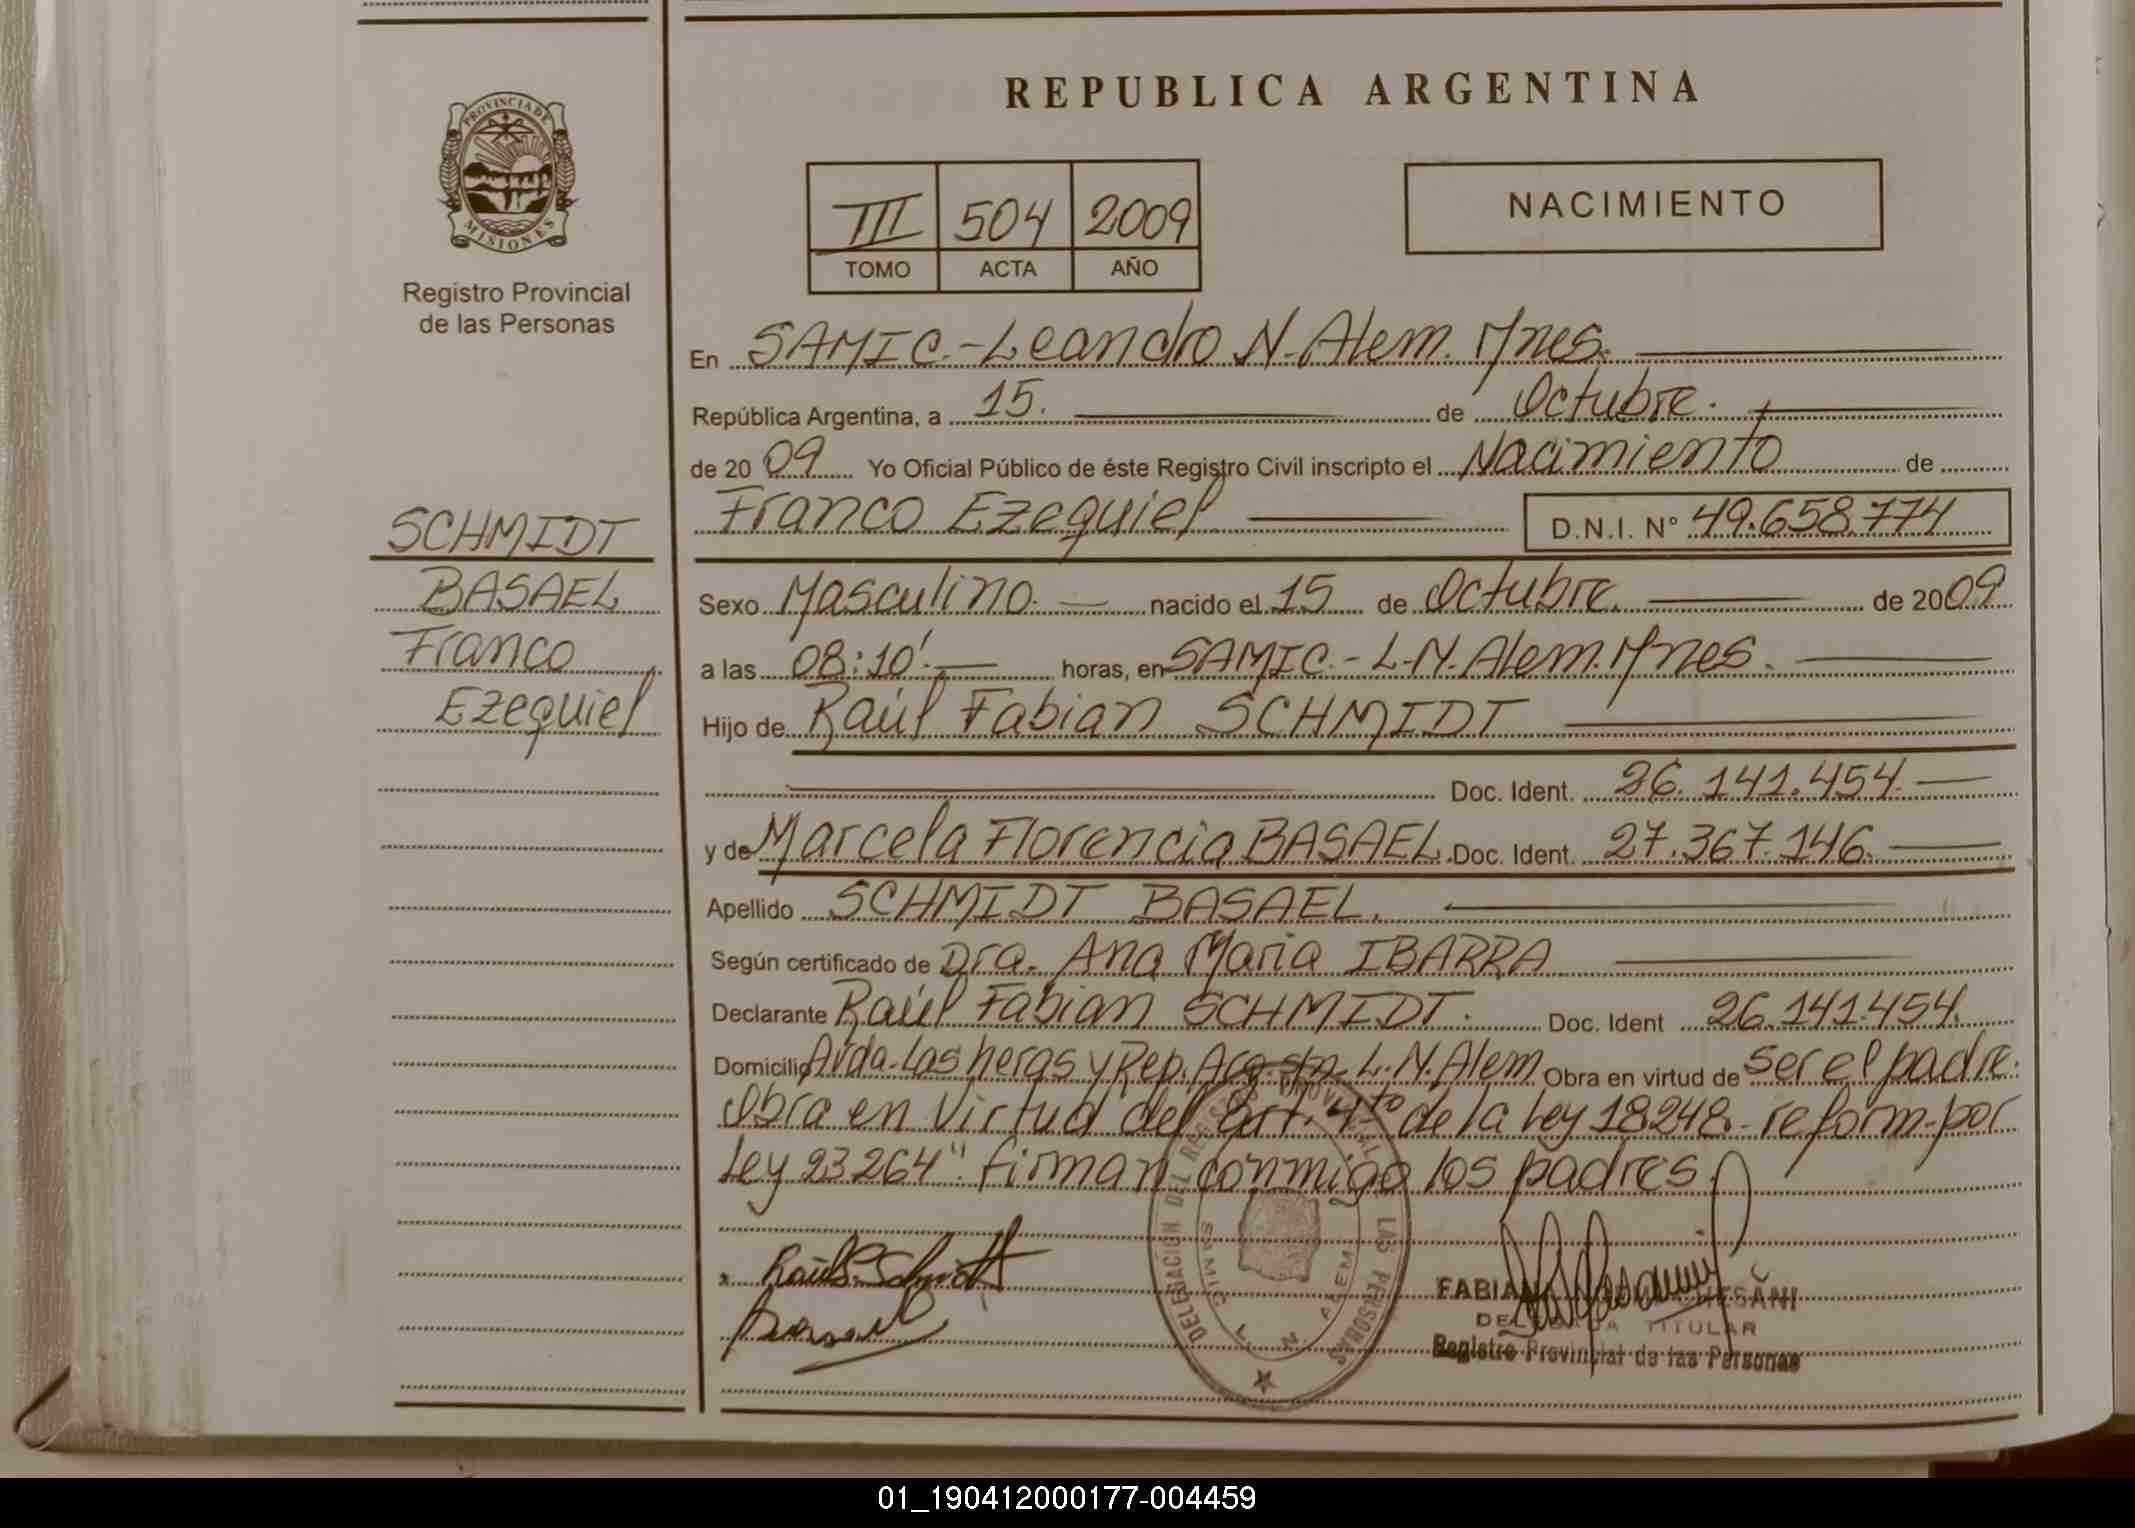 REPUBLICA ARGENTINA
PROVINCIA DE
MISIONES
Registro Provincial
de las Personas
III 504 2009
TOMO ACTA AÑO
NACIMIENTO
En SAMIC.-Leandro N. Alem. Mnes.
República Argentina, a 15. de Octubre.
de 2009 Yo Oficial Público de éste Registro Civil inscripto el Nacimiento de
Franco Ezequiel D.N.I. N° 49.658.774
SCHMIDT
BASAEL
Franco
Ezequiel
Sexo Masculino. nacido el 15 de Octubre. de 2009
a las 08:10'. horas, en SAMIC.- L.N. Alem. Mnes.
Hijo de Raúl Fabian SCHMIDT
Doc. Ident. 26.141.454.
y de Marcela Florencia BASAEL. Doc. Ident. 27.367.146.
Apellido SCHMIDT BASAEL.
Según certificado de Dra. Ana Maria IBARRA
Declarante Raúl Fabian SCHMIDT. Doc. Ident 26.141.454.
Domicilio Avda. Las heras y Rep. Argstn. L.N. Alem Obra en virtud de ser el padre.
Obra en Virtud del art. 4to de la Ley 18248.- reform-por
Ley 23264". firman conmigo los padres.
DELEGACIÓN DEL REGISTRO PROVINCIAL DE LAS PERSONAS
SAMIC L. N. ALEM
Raúl Schmidt
Basael
FABIANA
DELEGADA TITULAR
Registro Provincial de las Personas
01_190412000177-004459